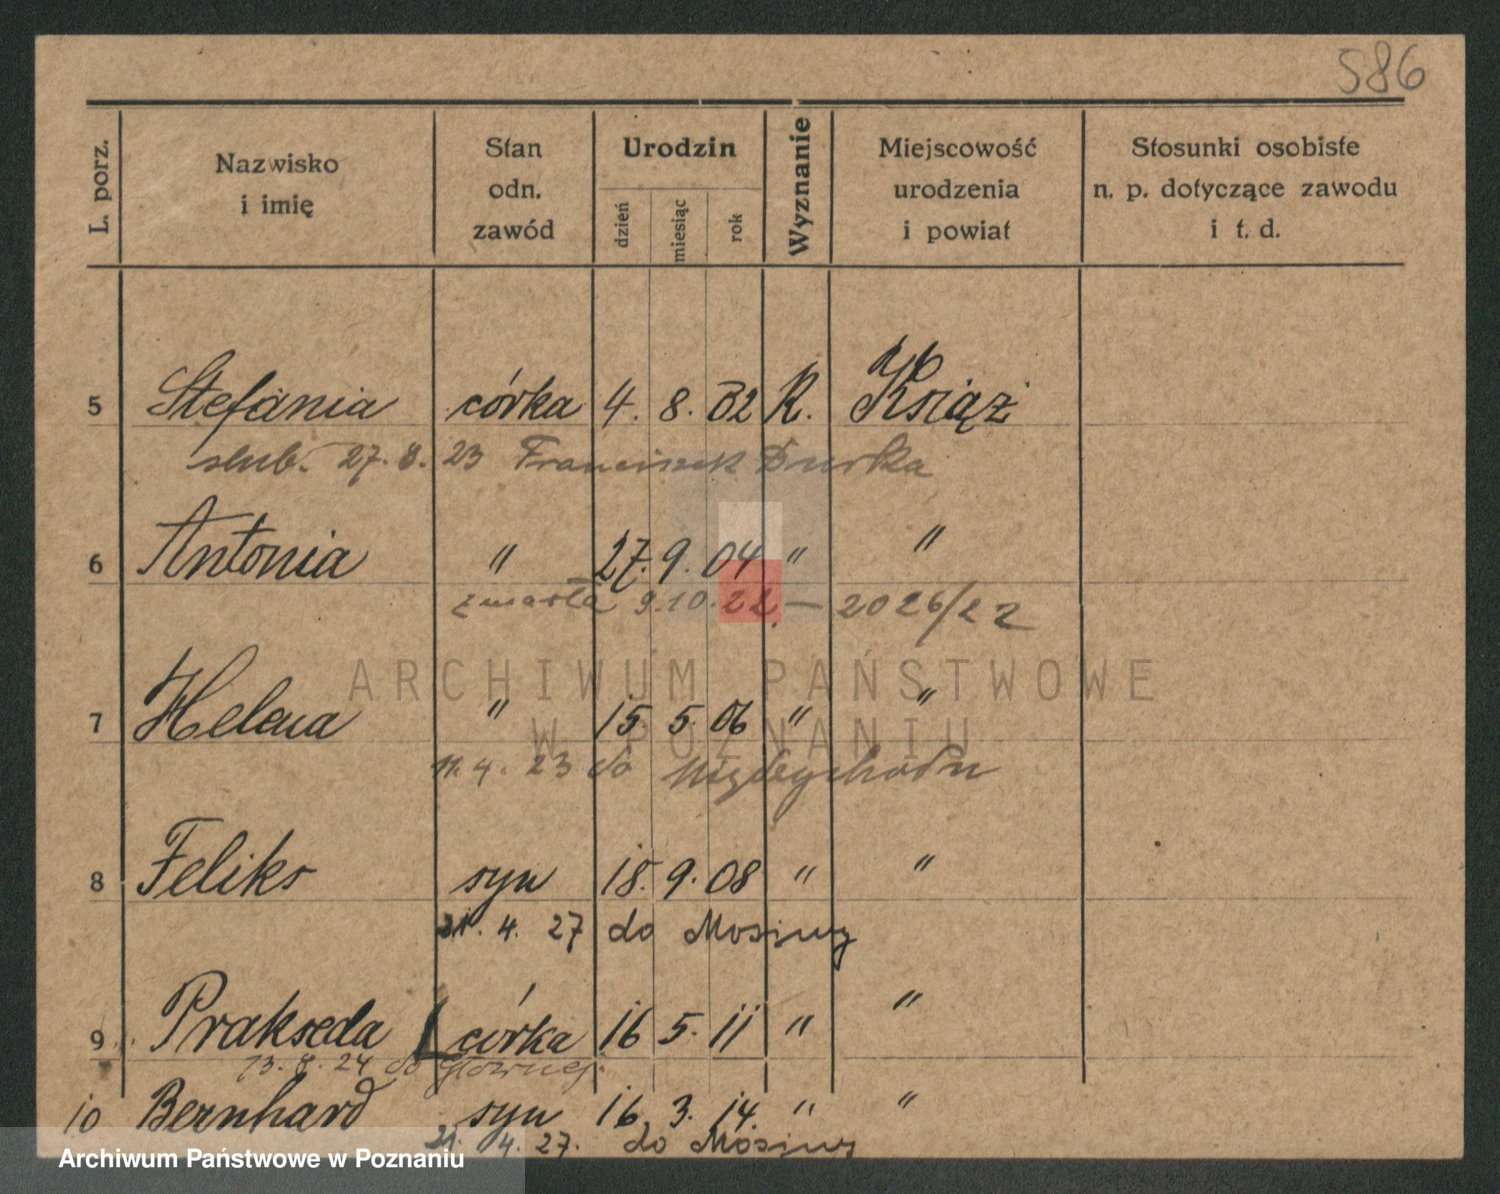 586
L. porz.
Nazwisko
i imię
Stan
odn.
zawód
Urodzin
dzień
miesiąc
rok
Wyznanie
Miejscowość
urodzenia
i powiat
Stosunki osobiste
n. p. dotyczące zawodu
i t. d.
5 Stefania córka 4. 8. 02 R. Książ
ślub. 27. 8. 23 Franciszek Durka
6 Antonia " 27. 9. 04 " "
zmarła 9.10.22. – 2026/22
7 Helena " 15 5. 06 " "
11. 4. 23 do Międzychodu
8 Feliks syn 18. 9. 08 " "
21. 4. 27 do Mosiny
9 Prakseda córka 16 5. 11 " "
13. 8. 24 do głównej.
10 Bernhard syn 16. 3. 14. " "
21. 4. 27. do Mosiny
ARCHIWUM PAŃSTWOWE
W POZNANIU
Archiwum Państwowe w Poznaniu